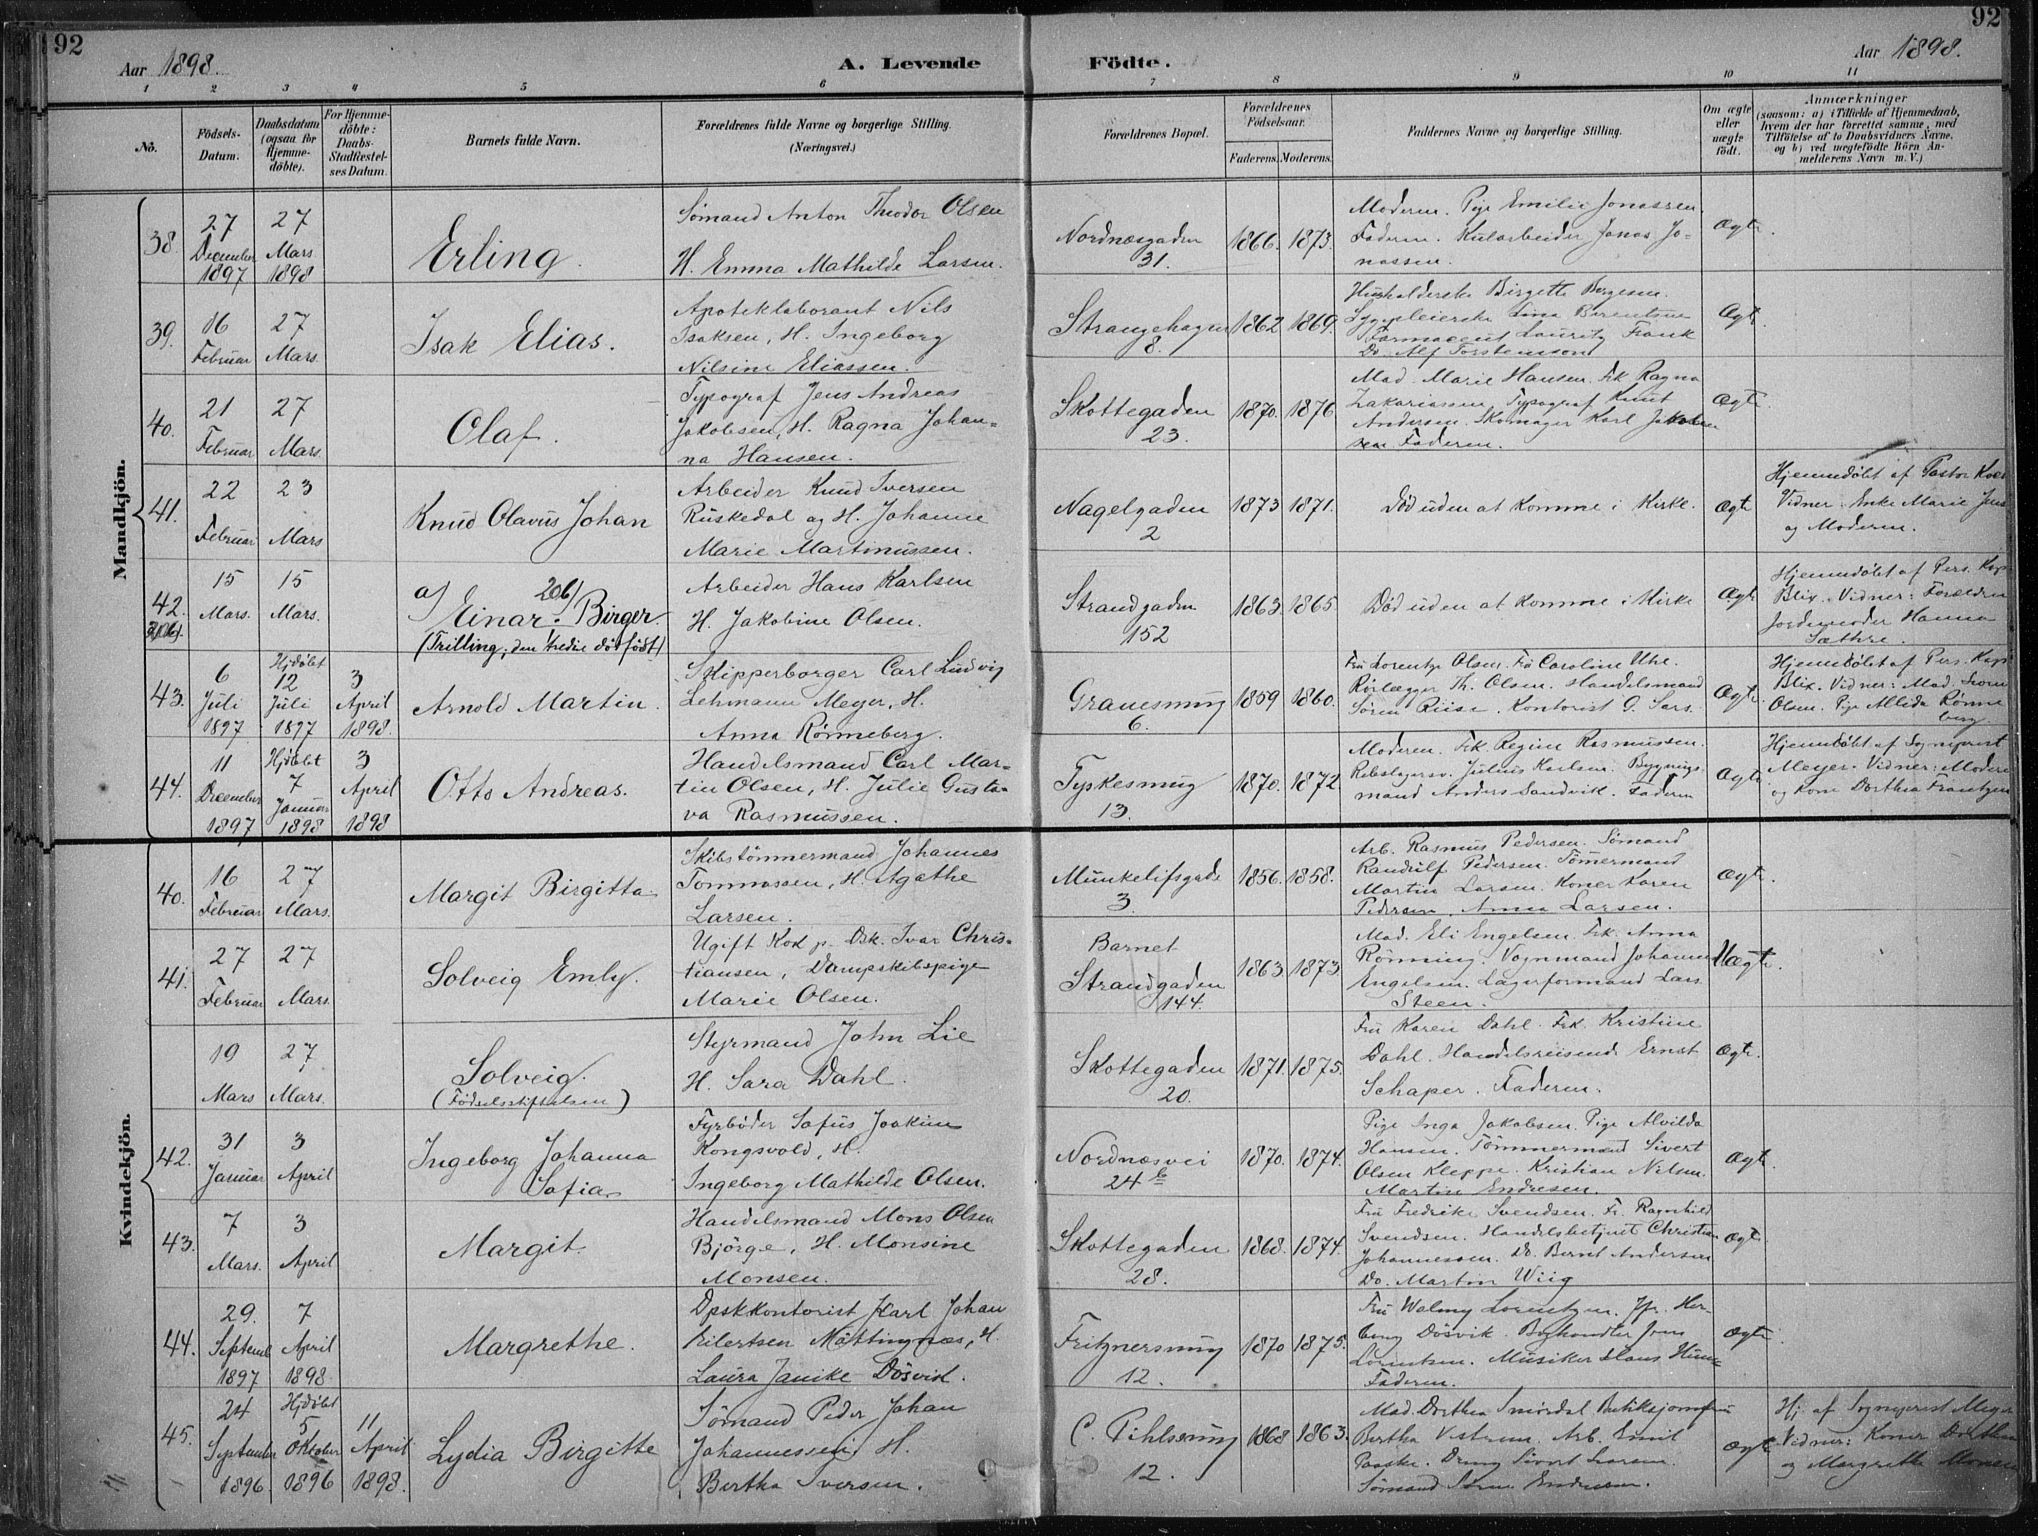 92
92
Aar 1898.
A. Levende Födte.
Aar 1898.
1 2 3 4 5 6 7 8 9 10 11
No.
Födsels-Datum.
Daabsdatum (ogsaa for Hjemme-döbte).
For Hjemme-döbte: Daabs-Stadfæstel-ses Datum.
Barnets fulde Navn.
Forældrenes fulde Navne og borgerlige Stilling.
(Næringsvei.)
Forældrenes Bopæl.
Forældrenes Födselsaar.
Faderens. Moderens.
Faddernes Navne og borgerlige Stilling.
Om ægte eller uægte födt.
Anmærkninger
(saasom: a) i Tilfælde af Hjemmedaab,
hvem der har forrettet samme, med
Tilföielse af to Daabsvidners Navne,
og b) ved uægtefödte Börn An-
melderens Navn m. V.)
Mandkjön.
38.
27 December 1897
27 Mars 1898
Erling.
Sömand Anton Theodor Olsen
H. Emma Mathilde Larsen.
Nordnæsgaden
31.
1866. 1873.
Moderen. Pige Emilie Jonassen.
Faderen. Kularbeider Jonas Jo-
nassen.
Ægte.
39.
16 Februar
27 Mars.
Isak Elias.
Apoteklaborant Nils
Isaksen, H. Ingeborg
Nilsine Eliassen.
Strangehagen
8.
1862 1869.
Husholderske Birgette Børgesen.
Sygepleierske Lina Berentsen
Farmaceut Lauritz Frank
Do. Alf Torstenson
Ægte.
40.
21 Februar
27 Mars.
Olaf.
Typograf Jens Andreas
Jakobsen, H. Ragna Johan-
na Hansen.
Skottegaden
23.
1870. 1876.
Mad. Marie Hansen. Frk Ragna
Zakariassen. Typograf Knut
Andersen. Skomager Karl Jakob-
sen. Faderen.
Ægte.
41.
22 Februar
23 Mars
Knud Olavus Johan
Arbeider Knud Iversen
Ruskedal og H. Johanne
Marie Martinussen.
Nagelgaden
2
1873 1871.
Död uden at komme i Kirke.
Ægte
Hjemmedöbt af Pastor
Vidner. Enke Marie
og Moderen.
42.
15 Mars.
15 Mars.
a) Einar. 2(b) Birger.
(Trilling; den tredie dödfödt)
Arbeider Hans Karlsen
H. Jakobine Olsen.
Strandgaden
152
1863. 1865.
Död uden at komme i Kirke
Ægte
Hjemmedöbt af Pers. Kap.
Blix. Vidner: Forældre
Jordemoder Hanna
Sæthre.
43.
6 Juli 1897
Hjdöbt 12 Juli 1897
3 April 1898.
Arnold Martin.
Skipperborger Carl Ludvig
Lehmann Meyer, H.
Anna Rönneberg.
Grauesmug
6.
1859 1860.
Fru Lorentze Olsen. Frk Caroline Uhe.
Rörlægger Th. Olsen. Handelsmand
Sören Riise. Kontorist O. Sars.
Ægte.
Hjemmedöbt af Pers. Kap.
Blix. Vidner: Mad.
Olsen. Pige Allida Rönne
berg.
44.
11 December 1897
Hjdöbt 7 Januar 1898
3 April 1898
Otto Andreas.
Handelsmand Carl Mar-
tin Olsen, H. Julie Gusta-
va Rasmussen.
Tyskesmug
13.
1870. 1872
Moderen. Frk Regine Rasmussen.
Rebslagersv. Julius Karlsen. Bygnings-
mand Anders Sandvik. Faderen
Ægte.
Hjemmedöbt af Sogneprest
Meyer. Vidner: Moderen
og Kone Dorthea Frantzen
Kvindekjön.
40.
16 Februar
27 Mars.
Margit Birgitta
Skibstömmermand Johannes
Tommassen, H. Agathe
Larsen.
Munkelifsgade
3.
1856. 1858.
Arb. Rasmus Pedersen. Sömand
Randulf Pedersen. Tömermand
Martin Larsen. Koner Karen
Pedersen, Anna Larsen.
Ægte.
41.
27 Februar
27 Mars.
Solveig Emly.
Ugift Kok p. Dsk. Ivar Chris-
tiansen, Dampskibspige
Marie Olsen.
Barnet
Strandgaden
144.
1863. 1873.
Mad. Eli Engelsen. Frk. Anna
Rönning. Vognmand Johannes
Engelsen. Lagerformand Lars
Steen.
Uægte.
19 Mars
27 Mars.
Solveig.
(Födselsstiftelsen)
Styrmand John Lie
H. Sara Dahl.
Skottegaden
20.
1871. 1875.
Fru Karen Dahl. Frk. Kristine
Dahl. Handelsreisende Ernst
Schaper. Faderen.
Ægte.
42.
31 Januar
3 April
Ingeborg Johanna
Sofia
Fyrböder Sofus Joakim
Kongsvold, H.
Ingeborg Mathilde Olsen.
Nordnæsvei
24 b
1870. 1874.
Pige Inga Jakobsen. Pige Alvilda
Hansen. Tömmermand Sivert
Olsen Kleppe. Kristian Nilsen.
Martin Endresen.
Ægte.
43.
7 Mars.
3 April
Margit.
Handelsmand Mons Olsen
Björge, H. Monsine
Monsen.
Skottegaden
28.
1868. 1874.
Fru Fredrike Svendsen. Fr. Ragnhild
Svendsen. Handelsbetjent Christian
Johannessen. Do. Bernt Andersen
Do. Martin Wiig
Ægte.
44.
29. Septemb. 1897
7 April 1898
Margrethe.
Dpskkontorist Karl Johan
Eilertsen Møttingnæs, H.
Laura Janike Dösvik.
Fritznersmug
12.
1870 1875.
Fru Walmy Lorentzen. Jfr. Her-
borg Dösvik. Boghandler Jens
Lorentzen. Musiker Hans
Faderen.
Ægte
45.
24 September 1896.
Hjdöbt 5 Oktober 1896
11 April 1898.
Lydia Birgitte
Sömand Peder Johan
Johannessen H.
Bertha Iversen.
C. Pihlsmug
12.
1868 1863.
Mad. Dorthea Smördal Butiksjomfru
Bertha Arb. Emil
Paaske. Dreng Sivert Larsen.
Sömand
Ægte
Hj. af Sogneprest Meyer
Vidner: Koner Dorthea
og Margrethe Monsen